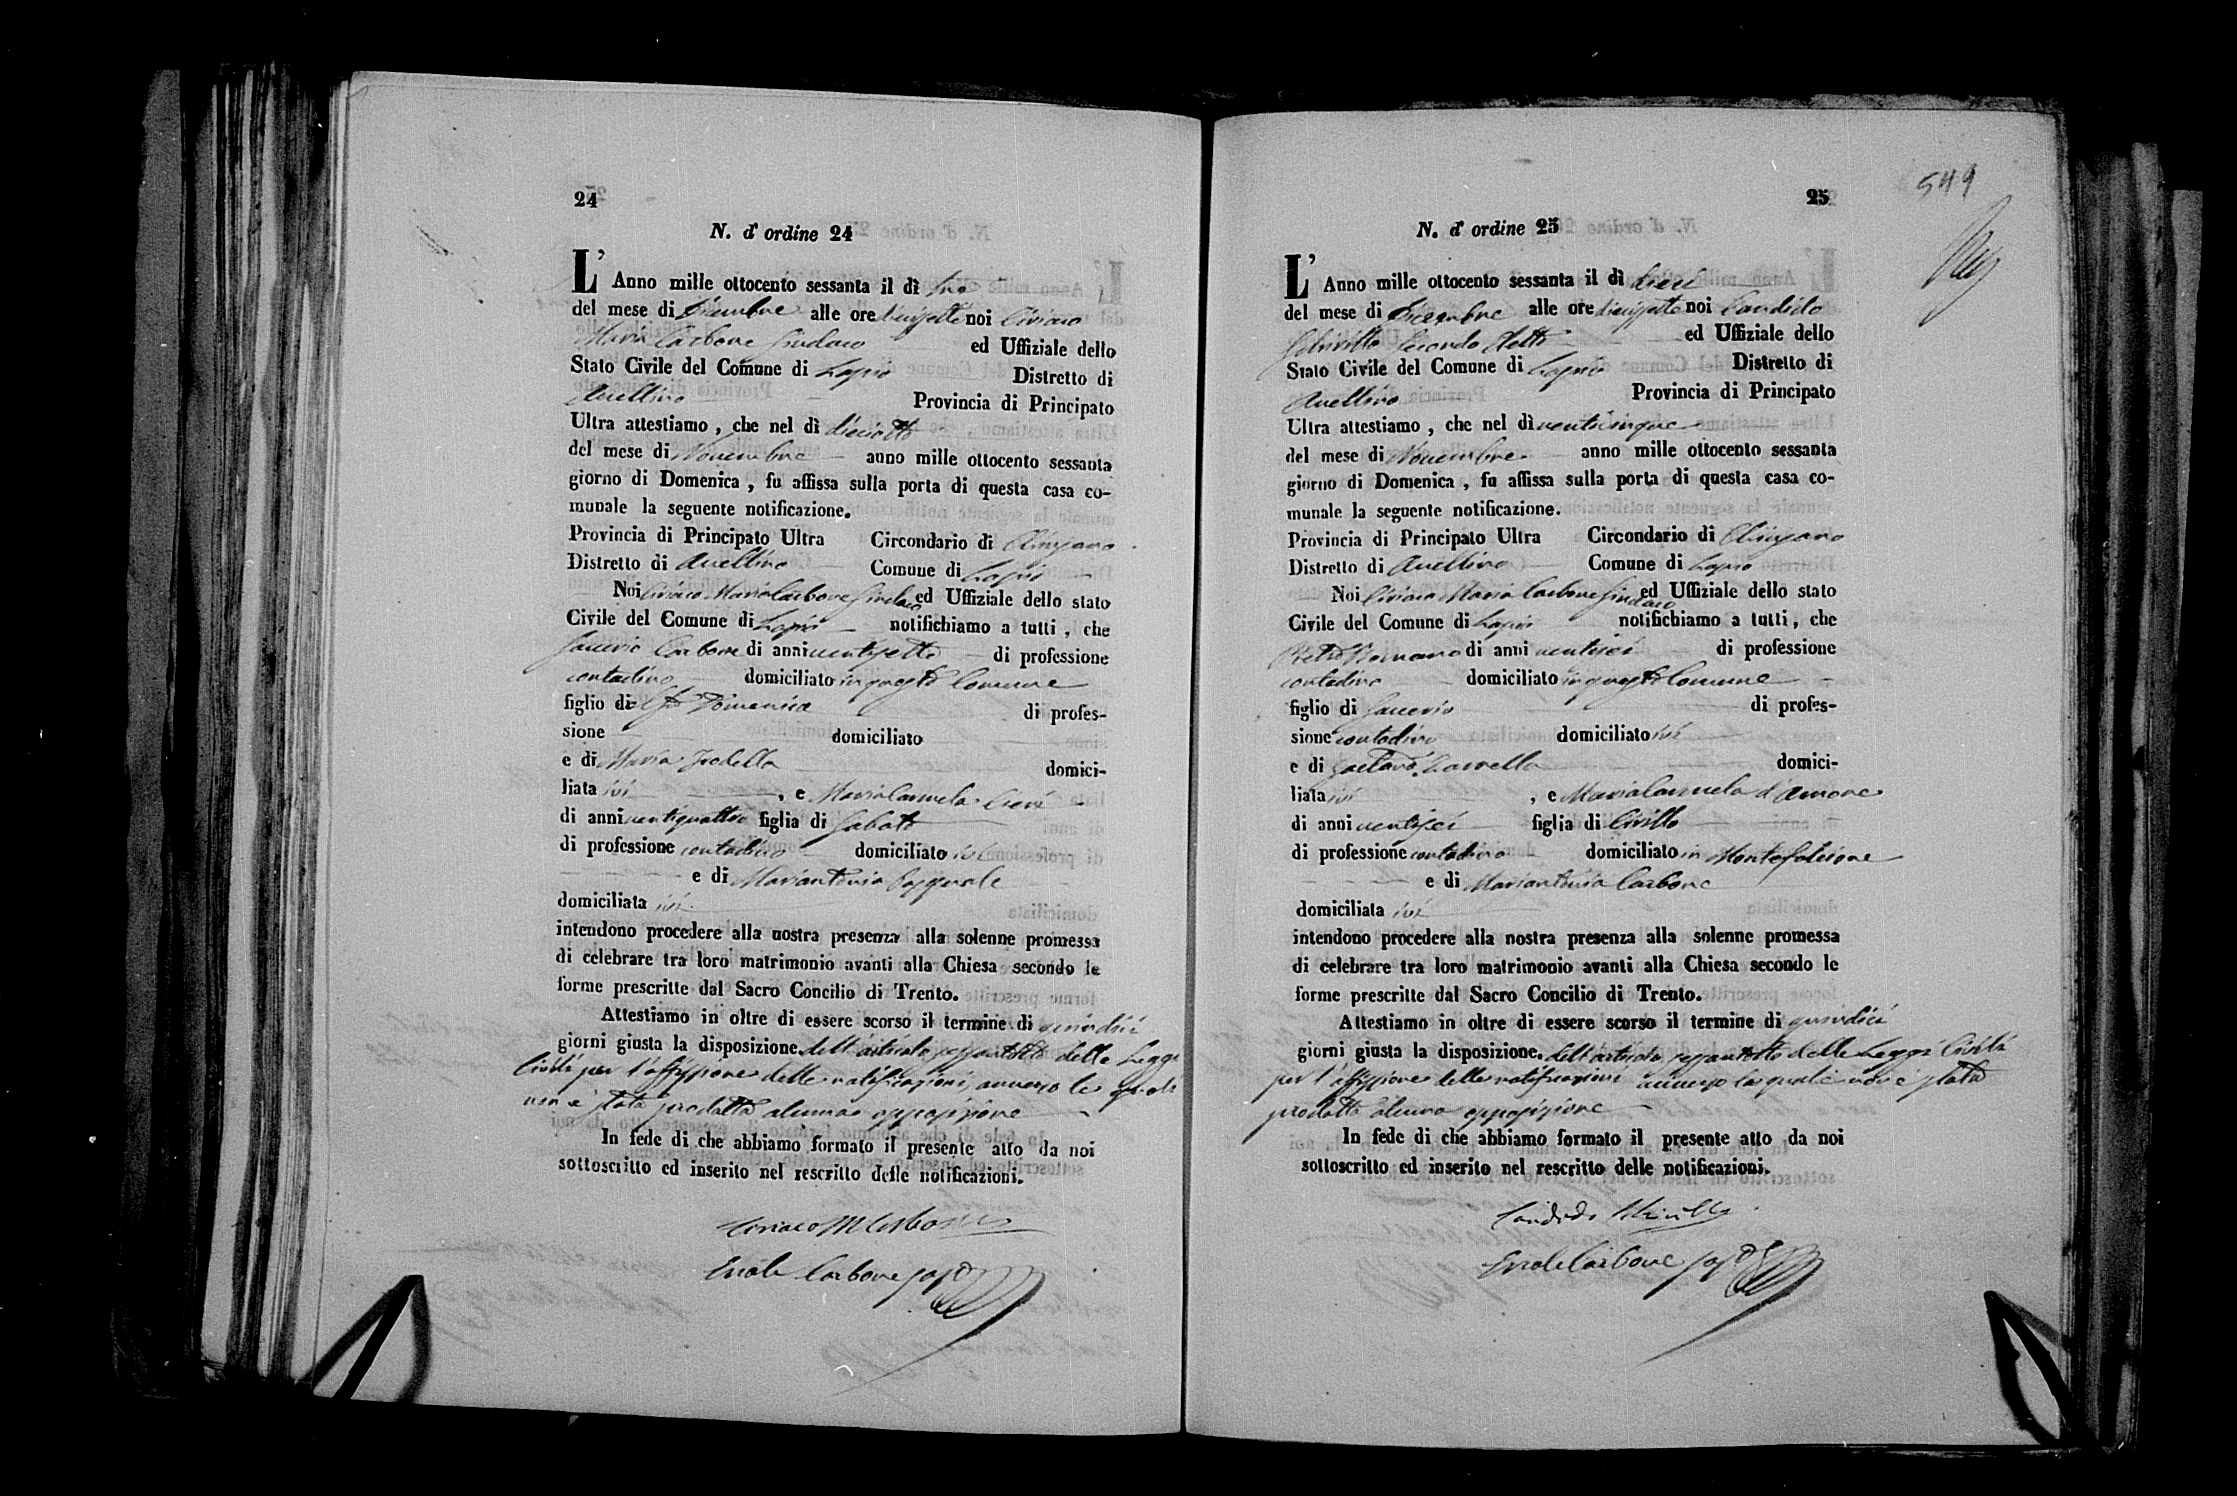 24
N. d' ordine 24
L' Anno mille ottocento sessanta il dì tre
del mese di Dicembre alle ore diecisette noi Ciriaco
Maria Carbone Sindaco ed Uffiziale dello
Stato Civile del Comune di Lapio Distretto di
Avellino Provincia di Principato
Ultra attestiamo, che nel dì dieciotto
del mese di Novembre anno mille ottocento sessanta
giorno di Domenica, fu affissa sulla porta di questa casa co-
munale la seguente notificazione.
Provincia di Principato Ultra Circondario di Chiusano
Distretto di Avellino Comune di Lapio
Noi Ciriaco Maria Carbone Sindaco ed Uffiziale dello stato
Civile del Comune di Lapio notifichiamo a tutti, che
Saverio Carbone di anni ventisette di professione
contadino domiciliato in questo Comune
figlio di Domenico di profes-
sione domiciliato
e di Maria domici-
liata ivi , e Maria Carmela
di anni ventiquattro figlia di Sabato
di professione contadino domiciliato ivi
e di Mariantonia Pasquale
domiciliata ivi
intendono procedere alla nostra presenza alla solenne promessa
di celebrare tra loro matrimonio avanti alla Chiesa secondo le
forme prescritte dal Sacro Concilio di Trento.
Attestiamo in oltre di essere scorso il termine di quindici
giorni giusta la disposizione dell'articolo sessantotto delle Leggi
Civili per l'affissione delle notificazioni, avverso le quali
non è stata prodotta alcuna opposizione
In fede di che abbiamo formato il presente atto da noi
sottoscritto ed inserito nel rescritto delle notificazioni.
Ciriaco M Carbone
Carbone
25
549
N. d' ordine 25
L' Anno mille ottocento sessanta il dì dieci
del mese di Dicembre alle ore diecisette noi Candido
Secondo Eletto ed Uffiziale dello
Stato Civile del Comune di Lapio Distretto di
Avellino Provincia di Principato
Ultra attestiamo, che nel dì venticinque
del mese di Novembre anno mille ottocento sessanta
giorno di Domenica, fu affissa sulla porta di questa casa co-
munale la seguente notificazione.
Provincia di Principato Ultra Circondario di Chiusano
Distretto di Avellino Comune di Lapio
Noi Ciriaco Maria Carbone Sindaco ed Uffiziale dello stato
Civile del Comune di Lapio notifichiamo a tutti, che
Pietro Romano di anni ventisei di professione
contadino domiciliato in questo Comune
figlio di Saverio di profes-
sione contadino domiciliato ivi
e di Gaetana domici-
liata ivi , e Maria Carmela d'Amore
di anni ventisei figlia di Cirillo
di professione contadino domiciliato in Montefalcione
e di Mariantonia Carbone
domiciliata ivi
intendono procedere alla nostra presenza alla solenne promessa
di celebrare tra loro matrimonio avanti alla Chiesa secondo le
forme prescritte dal Sacro Concilio di Trento.
Attestiamo in oltre di essere scorso il termine di quindici
giorni giusta la disposizione dell'articolo sessantotto delle Leggi Civili
per l'affissione delle notificazioni avverso la quale non è stata
prodotta alcuna opposizione
In fede di che abbiamo formato il presente atto da noi
sottoscritto ed inserito nel rescritto delle notificazioni.
Candido
Carbone